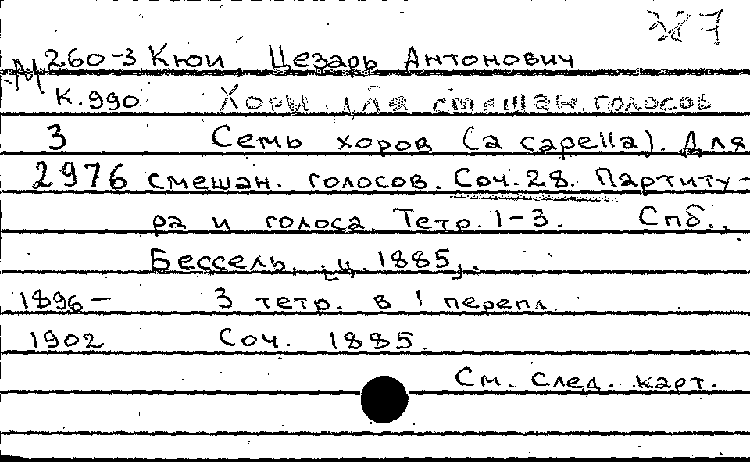 387
М 260-3 Кюи, Цезарь Антонович
К.990 Хоры для смешан. голосов
3 Семь хоров (a capella). Для
2976 смешан. голосов. Соч. 28. Партиту-
ра и голоса. Тетр. 1-3. Спб.,
Бессель, [ц. 1885].
1896- 3 тетр. в 1 перепл.
1902 Соч. 1885.
См. след. карт.